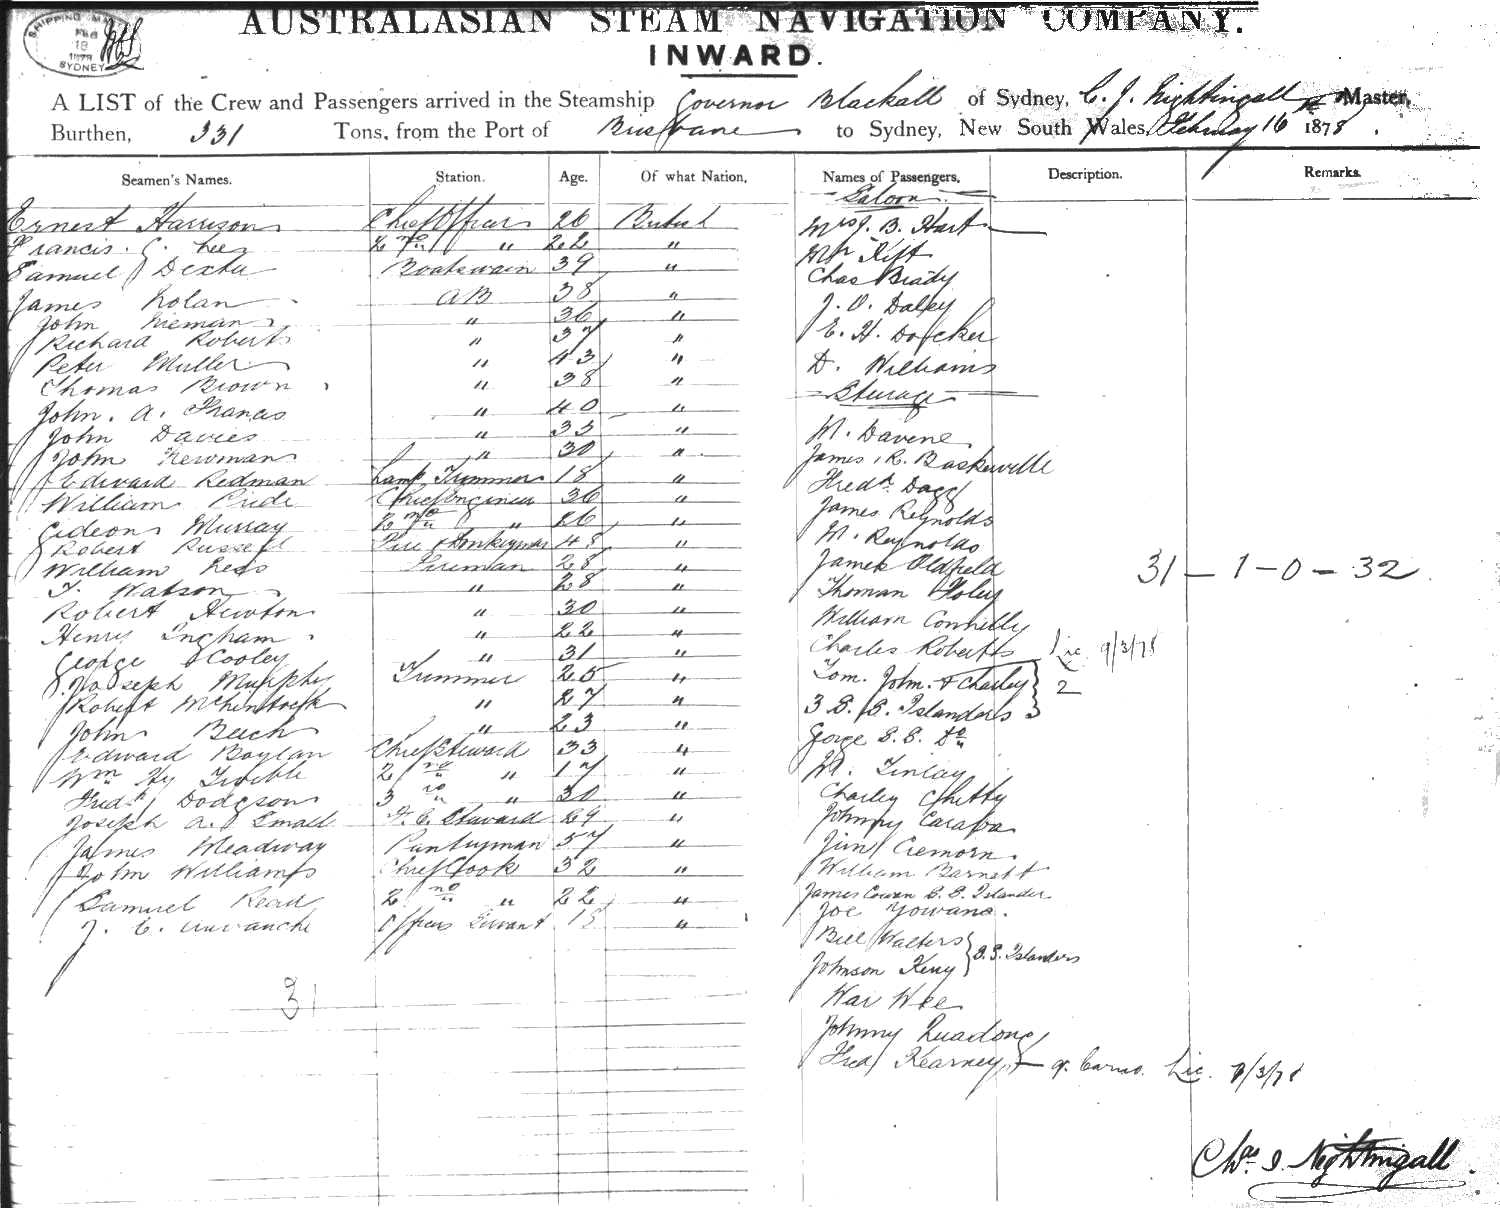 SHIPPING M
FEB
18
1878
SYDNEY
AUSTRALASIAN STEAM NAVIGATION COMPANY.
INWARD.
A LIST of the Crew and Passengers arrived in the Steamship Governor Blackall of Sydney, C. J. Nightingall Master,
Burthen, 331 Tons, from the Port of Brisbane to Sydney, New South Wales, February 16 1878.
Seamen's Names. Station. Age. Of what Nation, Names of Passengers, Description. Remarks.
Saloon
Ernest Harrison Chief Officer 26 British Mrs J. B. Hart
Francis. C. Lee 2nd " 22 " Mr Kift
Samuel Dexta Boatswain 39 " Chas Brady
James Nolan AB 38 " J. O. Daley
John Nieman " 36 " E. H. Doecker
Richard Roberts " 37 "
Peter Muller " 43 " D. Williams
Thomas Brown " 38 " Steerage
John. A. Francis " 40 "
John Davies " 33 " M. Davene
John Newman " 30 " James. R. Baskerville
Edward Redman Lamp Trimmer 18 " Fredk Dagg
William Pride Chief Engineer 36 " James Reynolds
Gideon Murray 2nd " 26 " M. Reynolds
Robert Russell Fire & Donkeyman 48 " James Oldfield
William Lees Fireman 28 " Thomas Foley 31 – 1 – 0 – 32
T. Watson " 28 " William Connelly
Robert Newton " 30 "
Henry Ingham " 22 " Charles Roberts Lic 9/3/78
George Cooley " 31 " Tom. John. & Charley 2
Joseph Murphy Trimmer 25 " 3 S. S. Islanders
Robert McKintosh " 27 " Gorge S. S. Do
John Beech " 23 " M. Finlay
Edward Boylan Chief Steward 33 " Charley Chitty
Wm Hy Trouble 2nd " 17 " Johnny Carafa
Fredk Dodgson 3rd " 30 " Jim Cremorn
Joseph A. Small F. C. Steward 29 " William Barnett
James Meadway Pantryman 57 " James Cowen S. S. Islander
John Williams Chief Cook 32 " Joe Yowana.
Samuel Read 2nd " 22 " Bill Walters
J. C. Officers Servant 18 " Johnson Kerry S. S. Islanders
31 War Wee
Johnny Luadong
Fred Kearney Lic. 9/3/78
Chas. J. Nightingall.